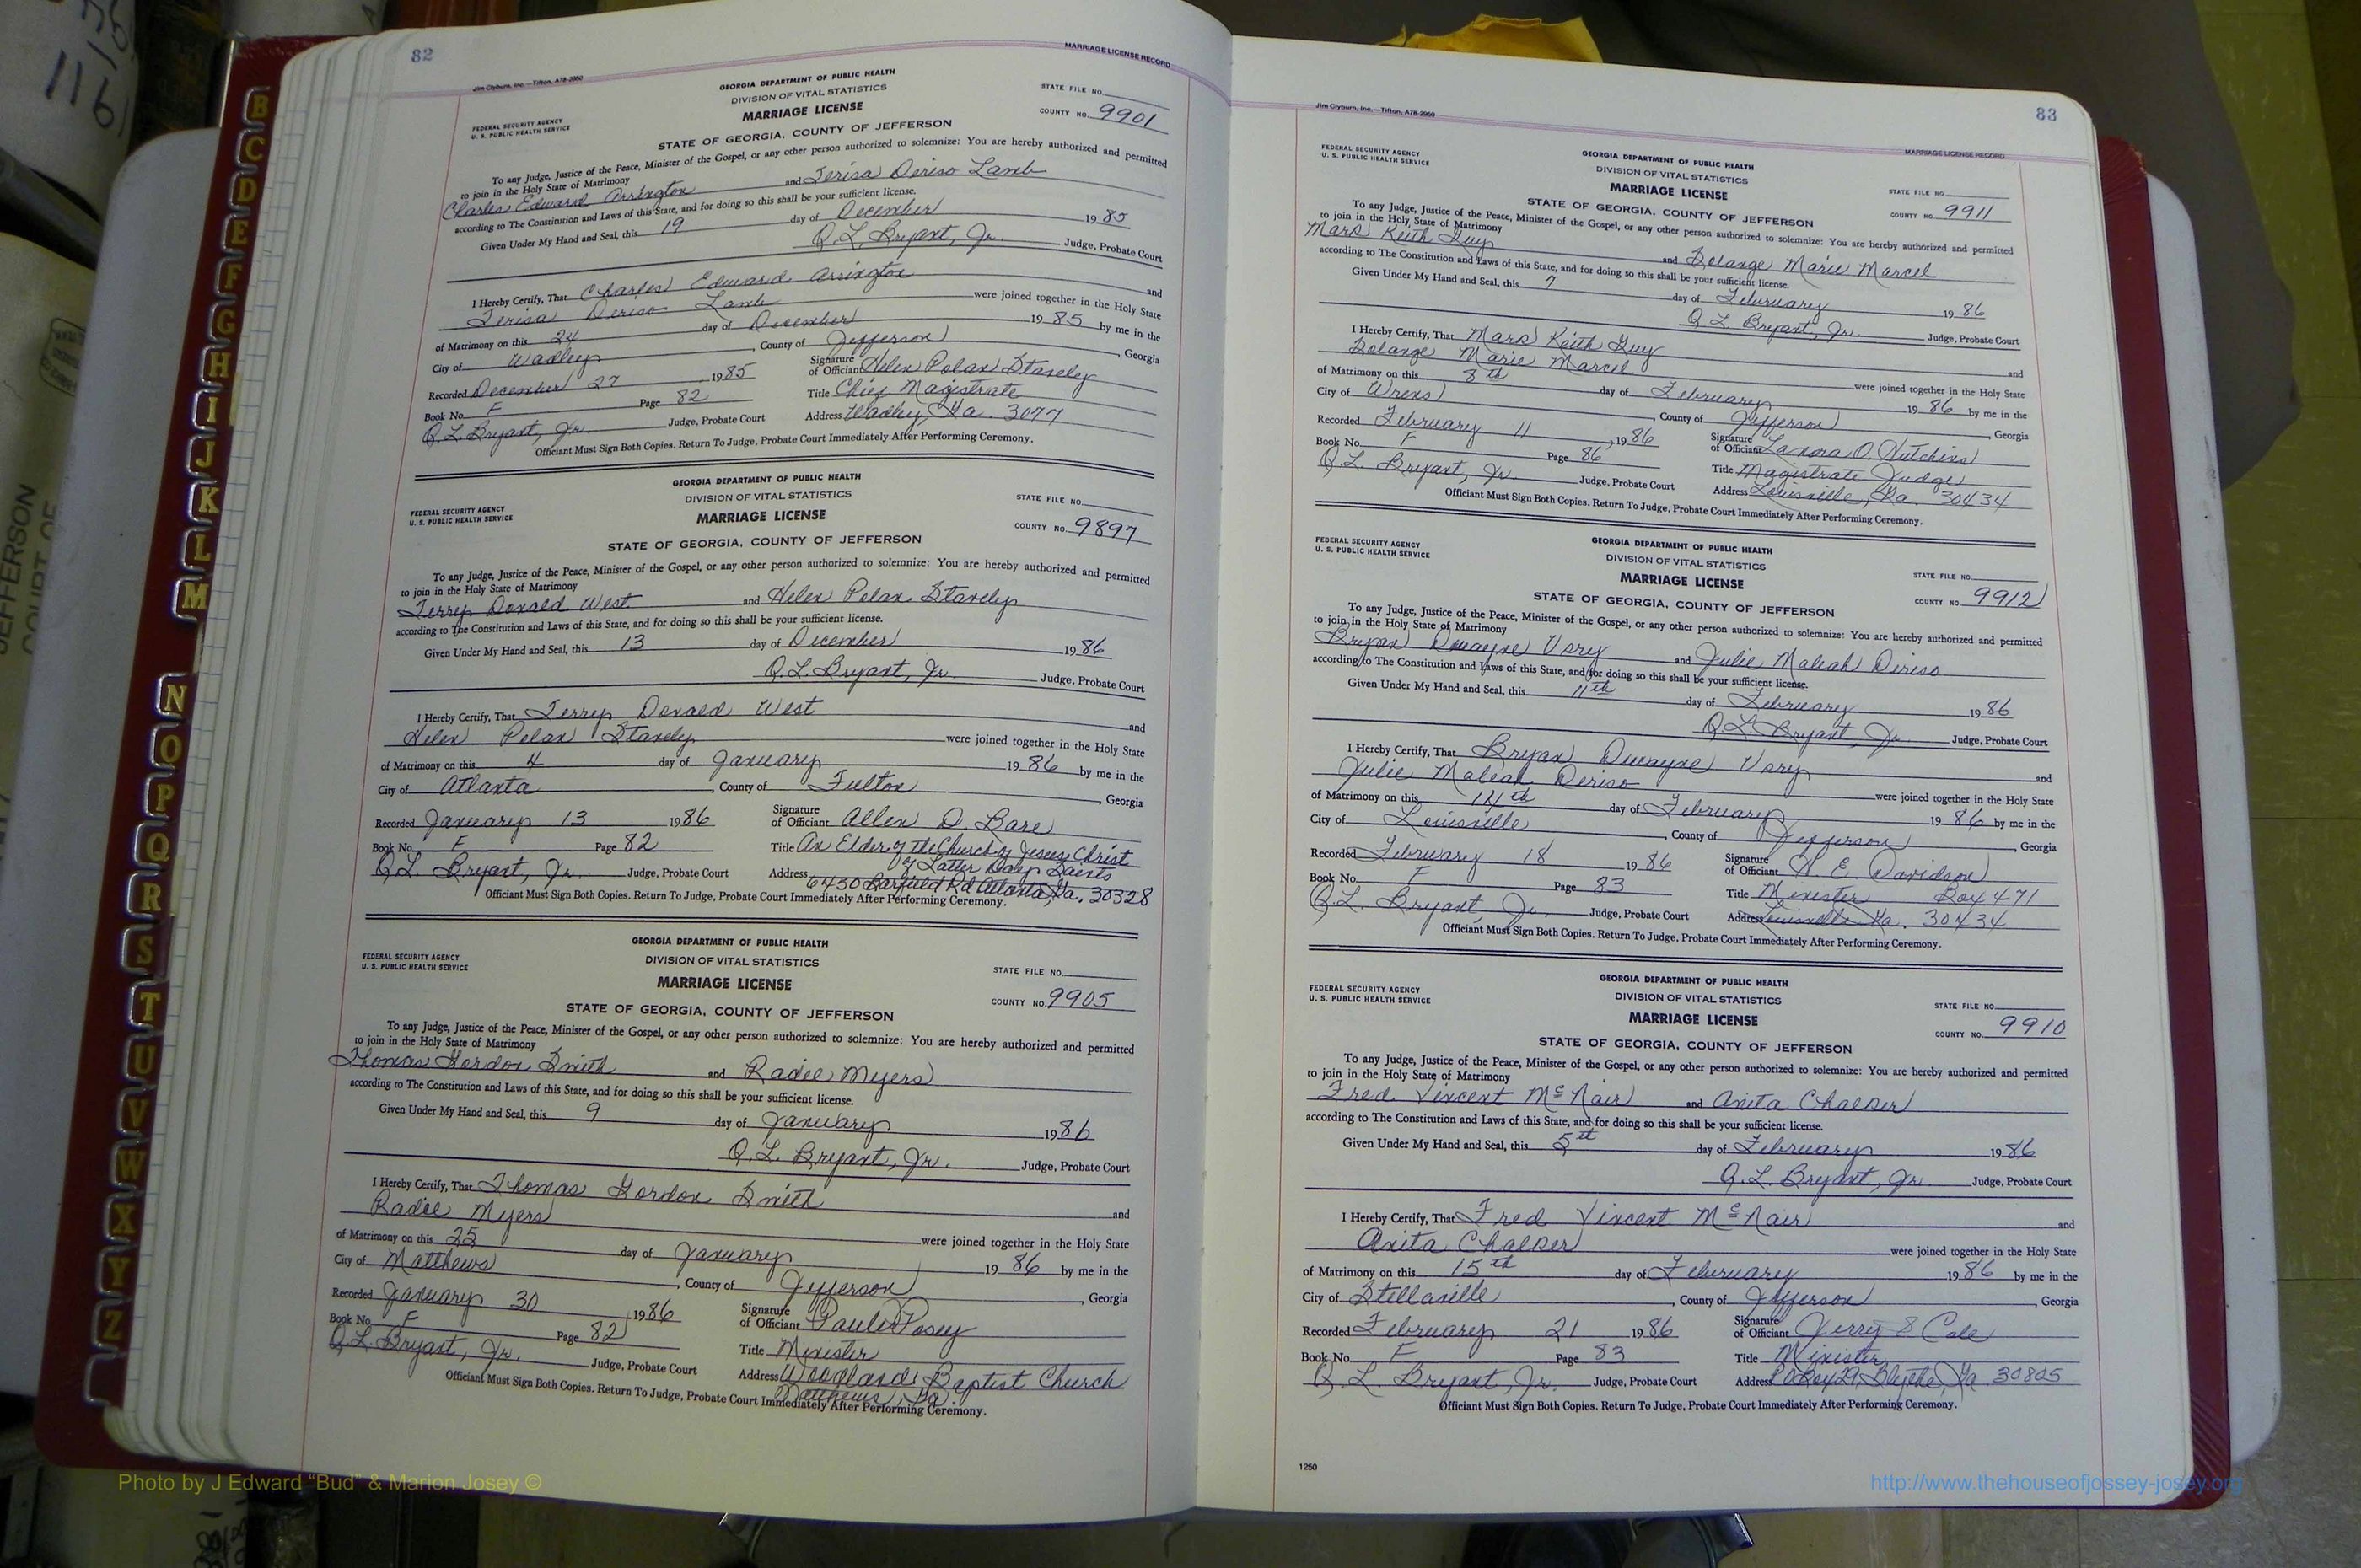 82
MARRIAGE LICENSE RECORD
Jim Clyburn, Inc.—Tifton, A78-2950
GEORGIA DEPARTMENT OF PUBLIC HEALTH
DIVISION OF VITAL STATISTICS
MARRIAGE LICENSE
STATE FILE NO.
FEDERAL SECURITY AGENCY
U. S. PUBLIC HEALTH SERVICE
COUNTY NO. 9901
STATE OF GEORGIA, COUNTY OF JEFFERSON
To any Judge, Justice of the Peace, Minister of the Gospel, or any other person authorized to solemnize: You are hereby authorized and permitted
to join in the Holy State of Matrimony
Charles Edward Arrington and Terisa Deriso Lamb
according to The Constitution and Laws of this State, and for doing so this shall be your sufficient license.
Given Under My Hand and Seal, this 19 day of December 1985
Q.L. Bryant, Jr. Judge, Probate Court
I Hereby Certify, That Charles Edward Arrington and
Terisa Deriso Lamb were joined together in the Holy State
of Matrimony on this 24 day of December 1985 by me in the
City of Wadley, County of Jefferson, Georgia
Recorded December 27, 1985 Signature of Officiant Helen Polan
Book No. F Page 82 Title Chief Magistrate
Q.L. Bryant, Jr. Judge, Probate Court Address Wadley, Ga. 3077
Officiant Must Sign Both Copies. Return To Judge, Probate Court Immediately After Performing Ceremony.
GEORGIA DEPARTMENT OF PUBLIC HEALTH
DIVISION OF VITAL STATISTICS
MARRIAGE LICENSE
STATE FILE NO.
FEDERAL SECURITY AGENCY
U. S. PUBLIC HEALTH SERVICE
COUNTY NO. 9897
STATE OF GEORGIA, COUNTY OF JEFFERSON
To any Judge, Justice of the Peace, Minister of the Gospel, or any other person authorized to solemnize: You are hereby authorized and permitted
to join in the Holy State of Matrimony
Terry Donald West and Helen Polan
according to The Constitution and Laws of this State, and for doing so this shall be your sufficient license.
Given Under My Hand and Seal, this 13 day of December 1986
Q.L. Bryant, Jr. Judge, Probate Court
I Hereby Certify, That Terry Donald West and
Helen Polan were joined together in the Holy State
of Matrimony on this 4 day of January 1986 by me in the
City of Atlanta, County of Fulton, Georgia
Recorded January 13 1986 Signature of Officiant Allen D. Bare
Book No. F Page 82 Title An Elder of the Church of Jesus Christ
of Latter Day Saints
Q.L. Bryant, Jr. Judge, Probate Court Address 6450 Barfield Rd Atlanta, Ga. 30328
Officiant Must Sign Both Copies. Return To Judge, Probate Court Immediately After Performing Ceremony.
GEORGIA DEPARTMENT OF PUBLIC HEALTH
DIVISION OF VITAL STATISTICS
MARRIAGE LICENSE
STATE FILE NO.
FEDERAL SECURITY AGENCY
U. S. PUBLIC HEALTH SERVICE
COUNTY NO. 9905
STATE OF GEORGIA, COUNTY OF JEFFERSON
To any Judge, Justice of the Peace, Minister of the Gospel, or any other person authorized to solemnize: You are hereby authorized and permitted
to join in the Holy State of Matrimony
Thomas Gordon Smith and Radie Myers
according to The Constitution and Laws of this State, and for doing so this shall be your sufficient license.
Given Under My Hand and Seal, this 9 day of January 1986
Q.L. Bryant, Jr. Judge, Probate Court
I Hereby Certify, That Thomas Gordon Smith and
Radie Myers were joined together in the Holy State
of Matrimony on this 25 day of January 1986 by me in the
City of Matthews, County of Jefferson, Georgia
Recorded January 30, 1986 Signature of Officiant Paul Posey
Book No. F Page 82 Title Minister
Q.L. Bryant, Jr. Judge, Probate Court Address Woodlands Baptist Church
Matthews, Ga.
Officiant Must Sign Both Copies. Return To Judge, Probate Court Immediately After Performing Ceremony.
83
Jim Clyburn, Inc.—Tifton, A78-2950
MARRIAGE LICENSE RECORD
FEDERAL SECURITY AGENCY
U. S. PUBLIC HEALTH SERVICE
GEORGIA DEPARTMENT OF PUBLIC HEALTH
DIVISION OF VITAL STATISTICS
MARRIAGE LICENSE
STATE FILE NO.
COUNTY NO. 9911
STATE OF GEORGIA, COUNTY OF JEFFERSON
To any Judge, Justice of the Peace, Minister of the Gospel, or any other person authorized to solemnize: You are hereby authorized and permitted
to join in the Holy State of Matrimony
Mark Keith Guy and Solange Marie Marcel
according to The Constitution and Laws of this State, and for doing so this shall be your sufficient license.
Given Under My Hand and Seal, this 7 day of February 1986
Q L Bryant, Jr. Judge, Probate Court
I Hereby Certify, That Mark Keith Guy and
Solange Marie Marcel were joined together in the Holy State
of Matrimony on this 8th day of February 1986 by me in the
City of Wrens, County of Jefferson, Georgia
Recorded February 11, 1986 Signature of Officiant Lanora O Hutchins
Book No. F Page 86 Title Magistrate Judge
Q.L. Bryant, Jr. Judge, Probate Court Address Louisville, Ga. 30434
Officiant Must Sign Both Copies. Return To Judge, Probate Court Immediately After Performing Ceremony.
FEDERAL SECURITY AGENCY
U. S. PUBLIC HEALTH SERVICE
GEORGIA DEPARTMENT OF PUBLIC HEALTH
DIVISION OF VITAL STATISTICS
MARRIAGE LICENSE
STATE FILE NO.
COUNTY NO. 9912
STATE OF GEORGIA, COUNTY OF JEFFERSON
To any Judge, Justice of the Peace, Minister of the Gospel, or any other person authorized to solemnize: You are hereby authorized and permitted
to join in the Holy State of Matrimony
Bryan Dwayne Usry and Julie Maleah Deriso
according to The Constitution and Laws of this State, and for doing so this shall be your sufficient license.
Given Under My Hand and Seal, this 11th day of February 1986
Q.L. Bryant, Jr. Judge, Probate Court
I Hereby Certify, That Bryan Dwayne Usry and
Julie Maleah Deriso were joined together in the Holy State
of Matrimony on this 14th day of February 1986 by me in the
City of Louisville, County of Jefferson, Georgia
Recorded February 18 1986 Signature of Officiant E. Davidson
Book No. F Page 83 Title Minister Box 471
Q.L. Bryant Jr. Judge, Probate Court Address Louisville Ga. 30434
Officiant Must Sign Both Copies. Return To Judge, Probate Court Immediately After Performing Ceremony.
FEDERAL SECURITY AGENCY
U. S. PUBLIC HEALTH SERVICE
GEORGIA DEPARTMENT OF PUBLIC HEALTH
DIVISION OF VITAL STATISTICS
MARRIAGE LICENSE
STATE FILE NO.
COUNTY NO. 9910
STATE OF GEORGIA, COUNTY OF JEFFERSON
To any Judge, Justice of the Peace, Minister of the Gospel, or any other person authorized to solemnize: You are hereby authorized and permitted
to join in the Holy State of Matrimony
Fred Vincent McNair and Anita Chalker
according to The Constitution and Laws of this State, and for doing so this shall be your sufficient license.
Given Under My Hand and Seal, this 5th day of February 1986
Q.L. Bryant, Jr. Judge, Probate Court
I Hereby Certify, That Fred Vincent McNair and
Anita Chalker were joined together in the Holy State
of Matrimony on this 15th day of February 1986 by me in the
City of Stellaville, County of Jefferson, Georgia
Recorded February 21 1986 Signature of Officiant Jerry E Cole
Book No. F Page 83 Title Minister
Q.L. Bryant, Jr. Judge, Probate Court Address P O Box 29, Blythe, Ga 30805
Officiant Must Sign Both Copies. Return To Judge, Probate Court Immediately After Performing Ceremony.
1250
B
C
D
E
F
G
H
I
J
K
L
M
N
O
P
Q
R
S
T
U
V
W
X
Y
Z
JEFFERSON
COURT OF
Photo by J Edward “Bud” & Marion Josey ©
http://www.thehouseofjossey-josey.org